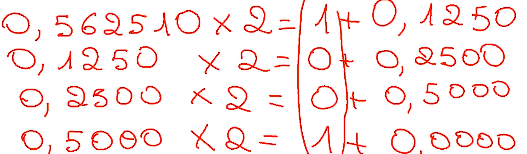 0,562510 x 2 = 1 + 0,1250
0,1250 x 2 = 0 + 0,2500
0,2500 x 2 = 0 + 0,5000
0,5000 x 2 = 1 + 0.0000